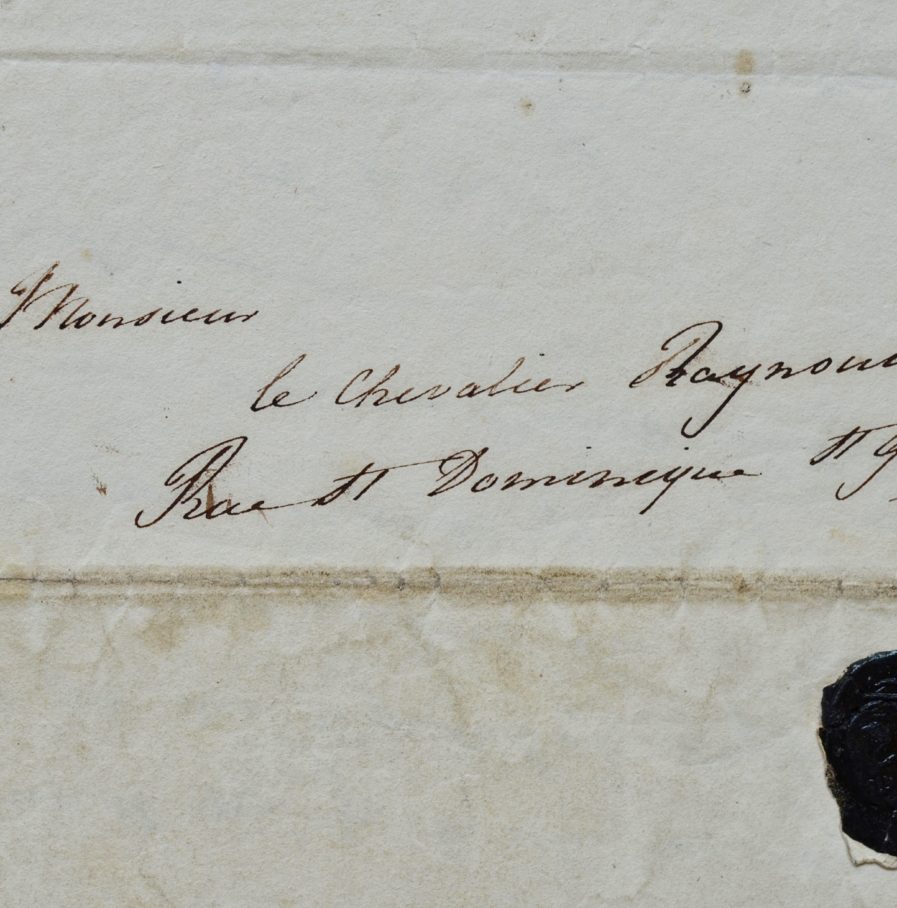 Monsieur
le Chevalier Raynoua
Rue St Dominique St G